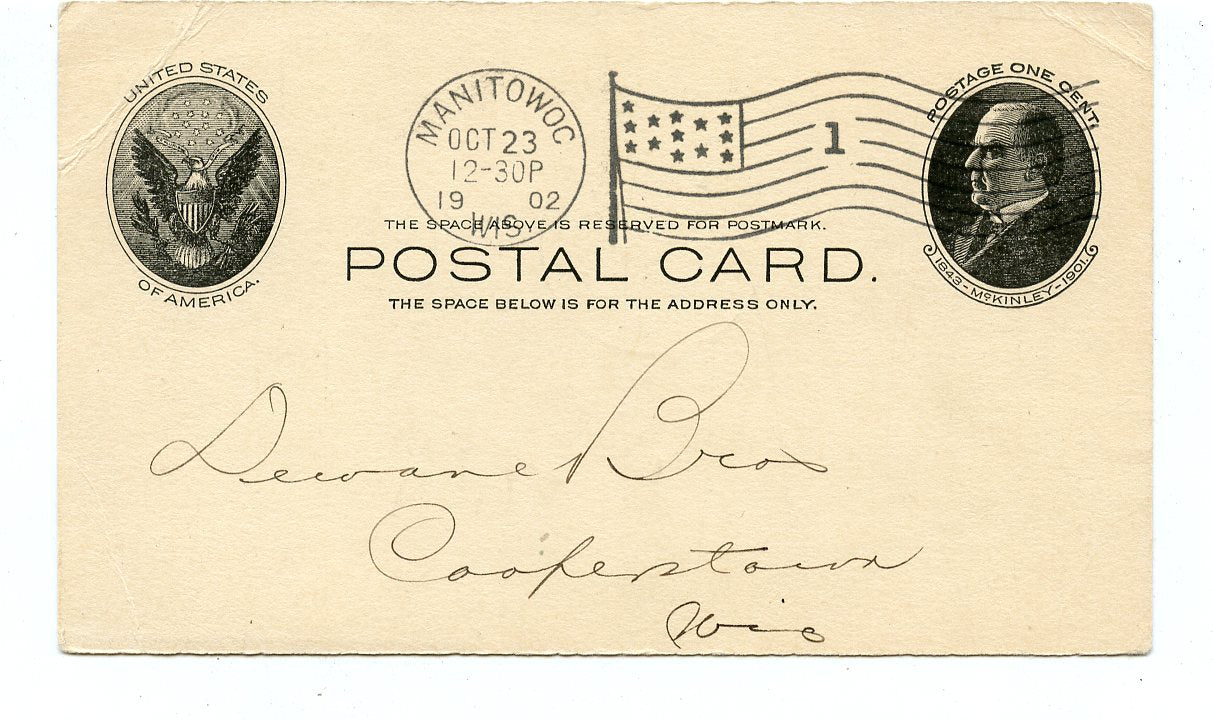 UNITED STATES
OF AMERICA.
MANITOWOC
OCT 23
12-30P
19 02
WIS
1
POSTAGE ONE CENT.
1843-McKINLEY-1901.
THE SPACE ABOVE IS RESERVED FOR POSTMARK.
POSTAL CARD.
THE SPACE BELOW IS FOR THE ADDRESS ONLY.
Dewane Bros
Cooperstown
Wis